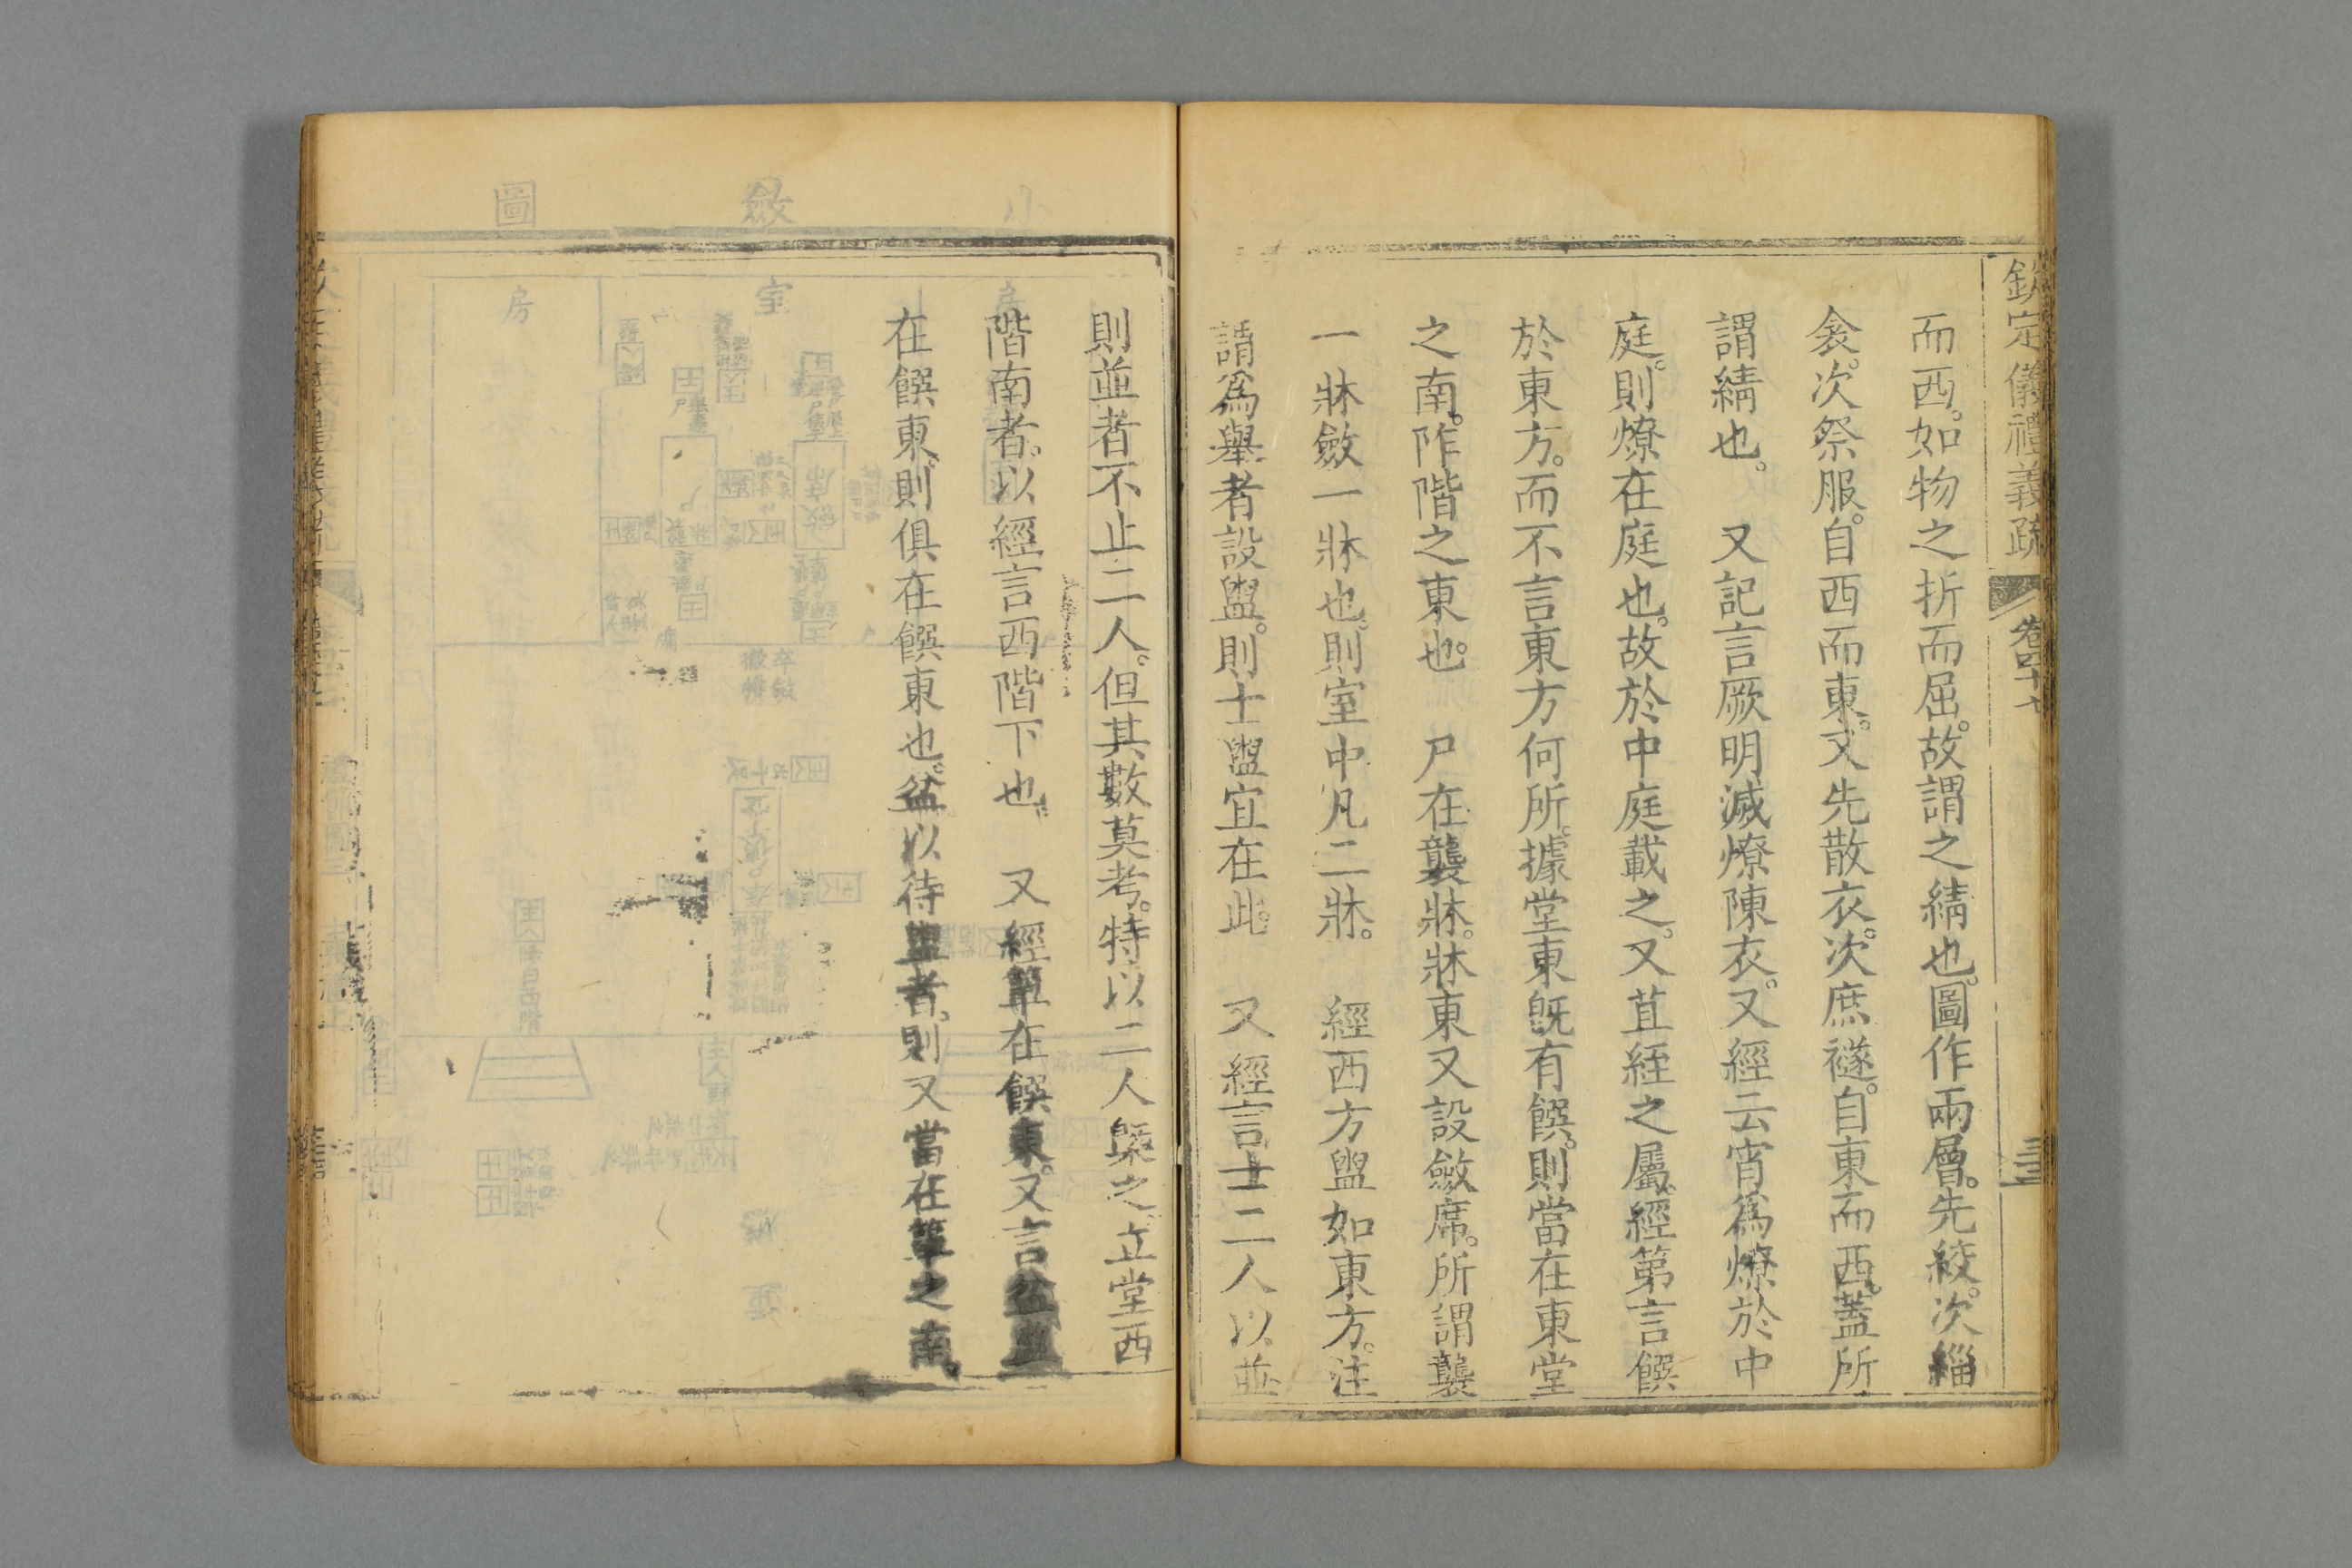 欽定儀禮義疏 卷四十七
而西。如物之折而屈。故謂之綪也。圖作兩層。先絞。次緇
衾。次祭服。自西而東。又先散衣。次庶襚。自東而西。蓋所
謂綪也。 又記言厥明滅燎陳衣。又經云宵爲燎於中
庭。則燎在庭也。故於中庭載之。又苴絰之屬。經第言饌
於東方。而不言東方何所。據堂東旣有饌。則當在東堂
之南。阼階之東也。 尸在襲牀。牀東又設斂席。所謂襲
一牀斂一牀也。則室中凡二牀。 經西方盥如東方。注
謂爲舉者設盥。則士盥宜在此。 又經言士二人以並
則並者不止二人。但其數莫考。特以二人槩之。立堂西
階南者。以經言西階下也。 又經簞在饌東。又言盆盥
在饌東。則俱在饌東也。盆以待盥者。則又當在簞之南。